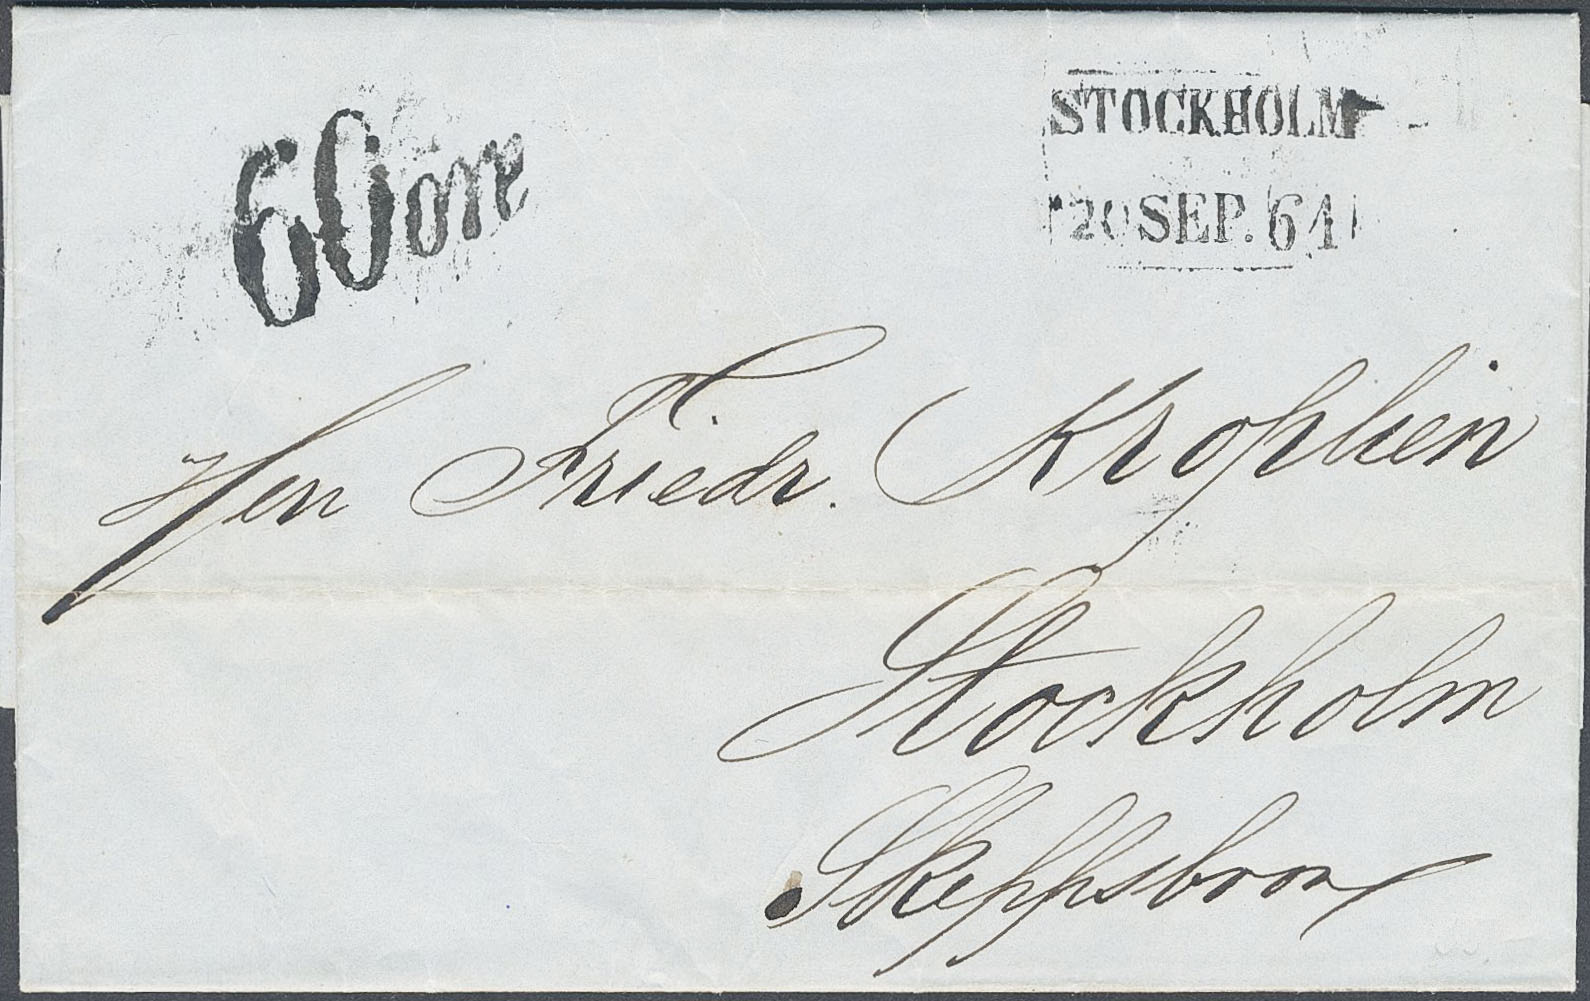 60 öre
STOCKHOLM
20 SEP. 64
Herr Friedr. Krohlien
Stockholm
Skeppsbron